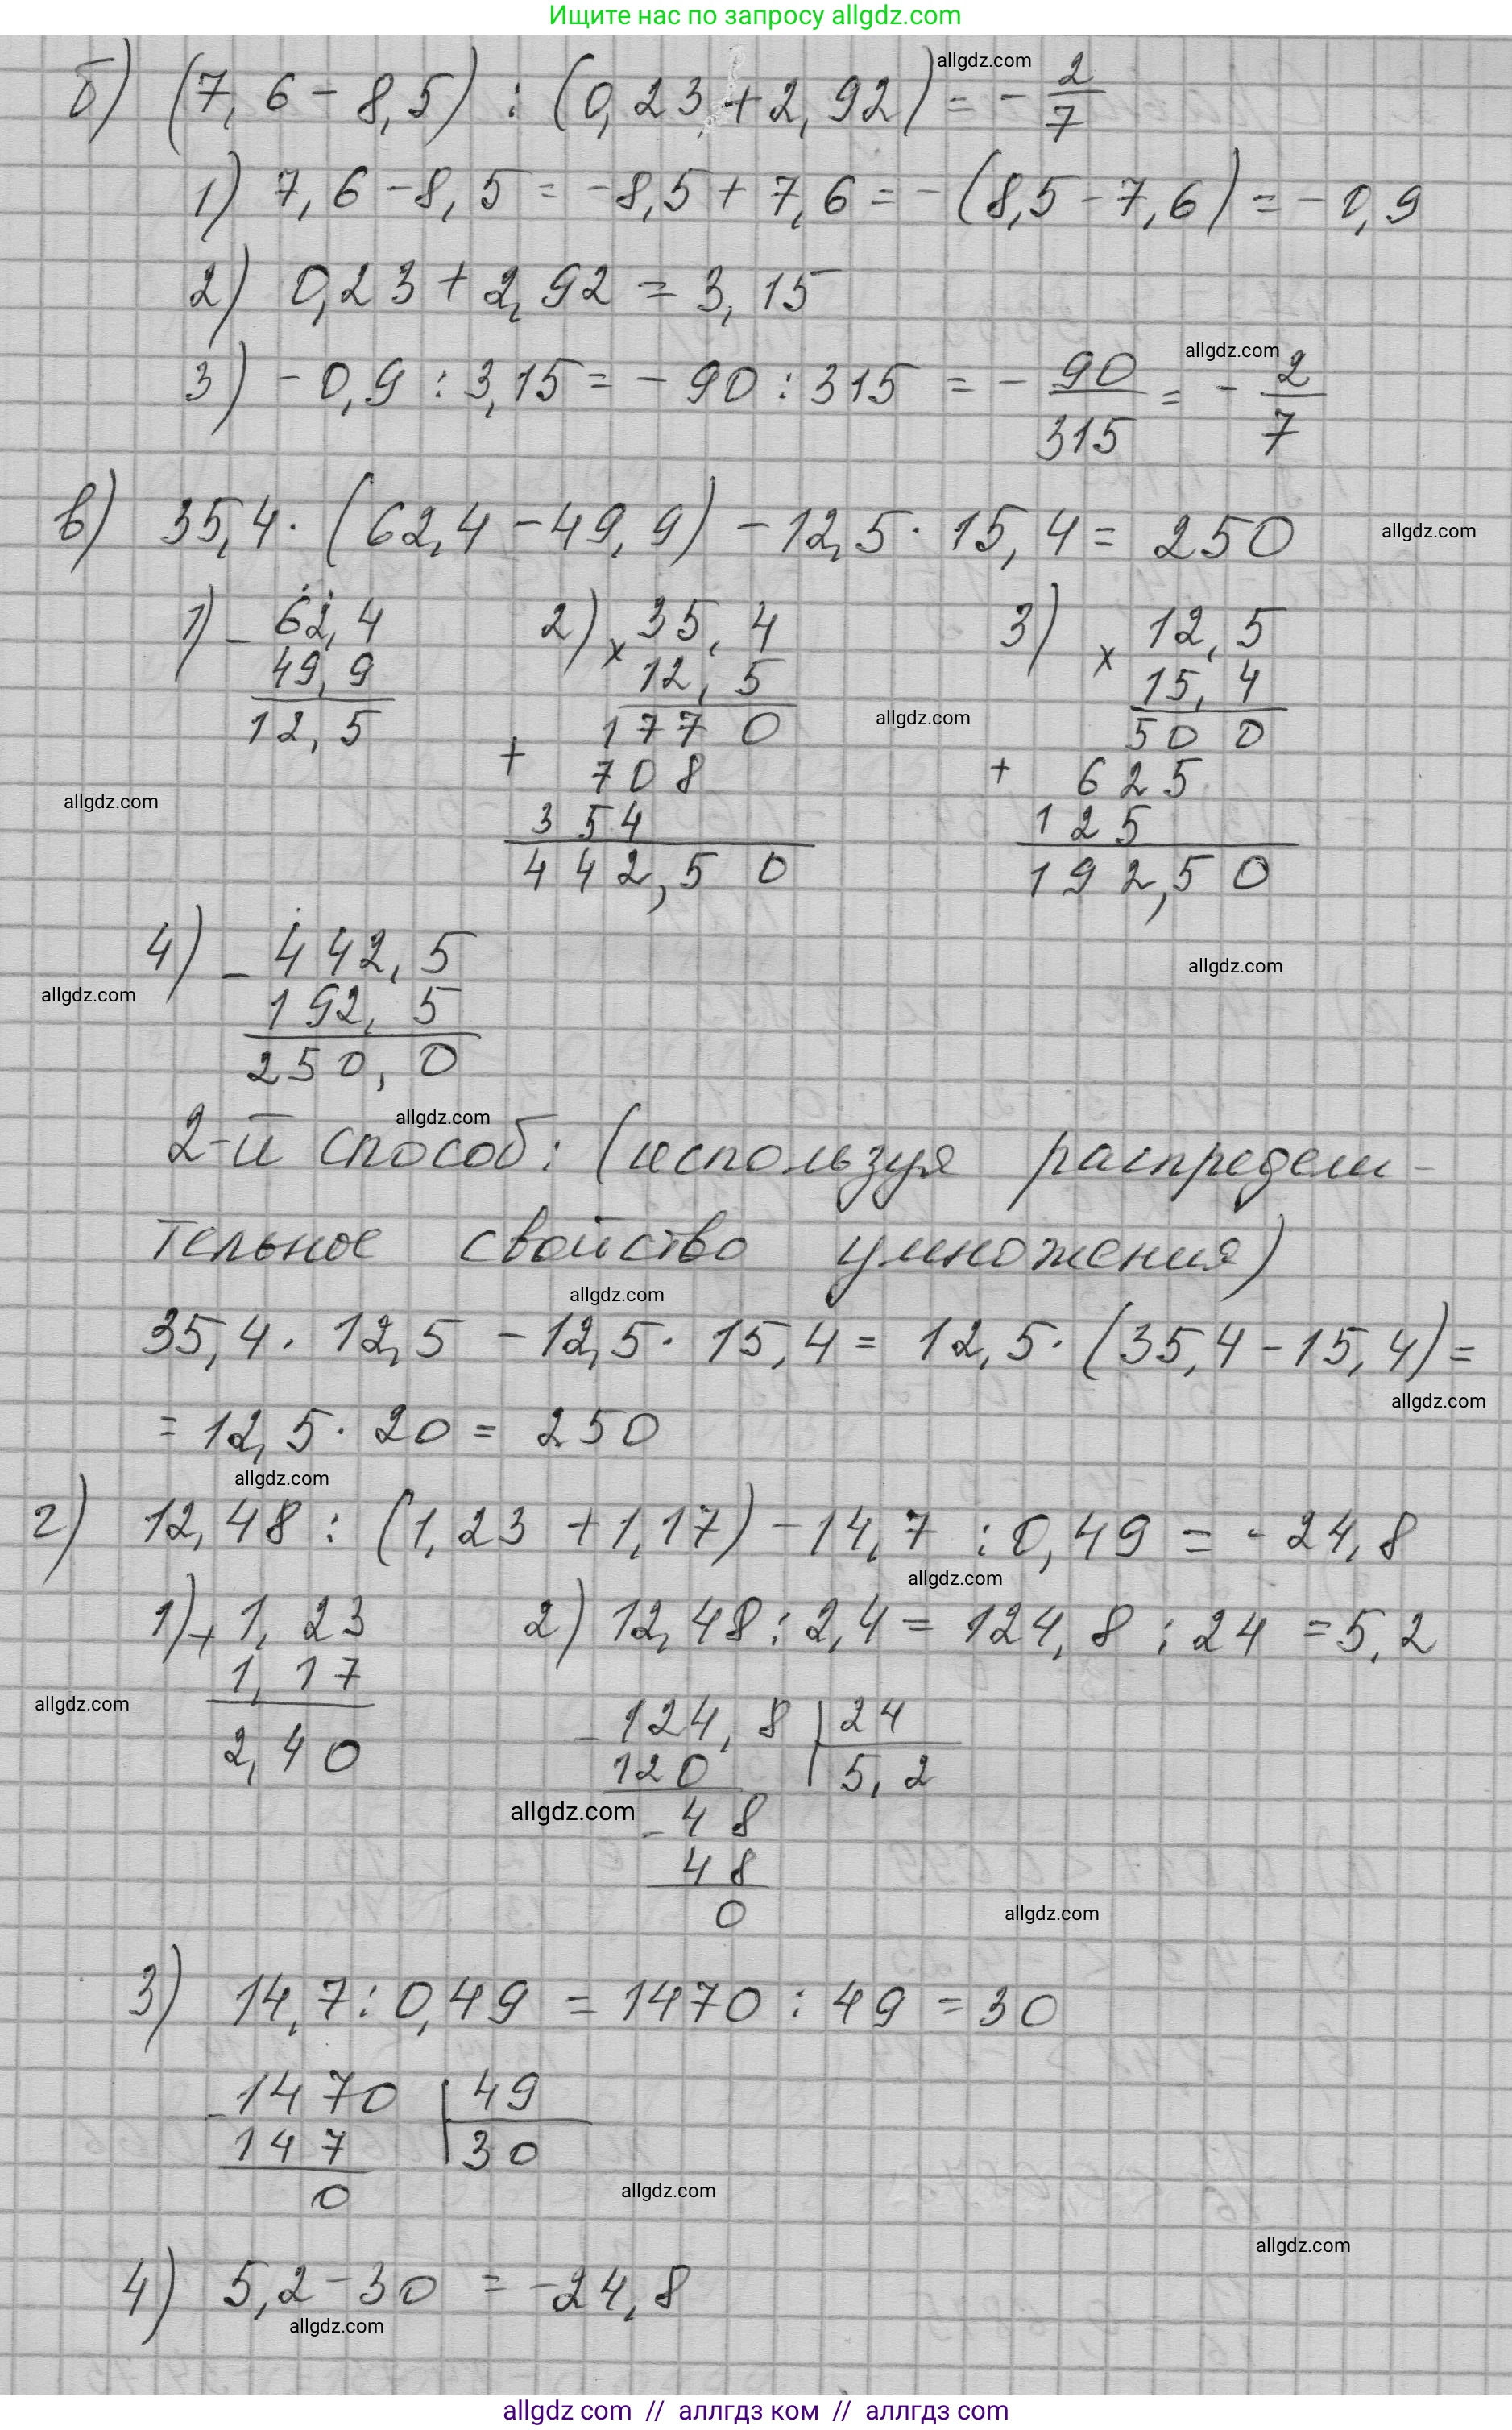 Ищите нас по запросу allgdz.com
б) (7,6 - 8,5) : (0,23 + 2,92) = - 2/7
allgdz.com
1) 7,6 - 8,5 = -8,5 + 7,6 = -(8,5 - 7,6) = -0,9
2) 0,23 + 2,92 = 3,15
allgdz.com
3) -0,9 : 3,15 = -90 : 315 = - 90/315 = - 2/7
в) 35,4 · (62,4 - 49,9) - 12,5 · 15,4 = 250
allgdz.com
1) - 62,4
49,9
12,5
2) × 35,4
12,5
1770
+ 708
354
442,50
3) × 12,5
15,4
500
+ 625
125
192,50
allgdz.com
allgdz.com
4) - 442,5
192,5
250,0
allgdz.com
allgdz.com
allgdz.com
2-й способ: (используя распредели-
тельное свойство умножения)
allgdz.com
35,4 · 12,5 - 12,5 · 15,4 = 12,5 · (35,4 - 15,4) =
allgdz.com
= 12,5 · 20 = 250
allgdz.com
г) 12,48 : (1,23 + 1,17) - 14,7 : 0,49 = - 24,8
allgdz.com
1) + 1,23
1,17
2,40
2) 12,48 : 2,4 = 124,8 : 24 = 5,2
allgdz.com
- 124,8 | 24
120 | 5,2
allgdz.com
- 48
48
0
allgdz.com
3) 14,7 : 0,49 = 1470 : 49 = 30
- 1470 | 49
147 | 30
0
allgdz.com
allgdz.com
4) 5,2 - 30 = -24,8
allgdz.com
allgdz com // аллгдз ком // аллгдз com